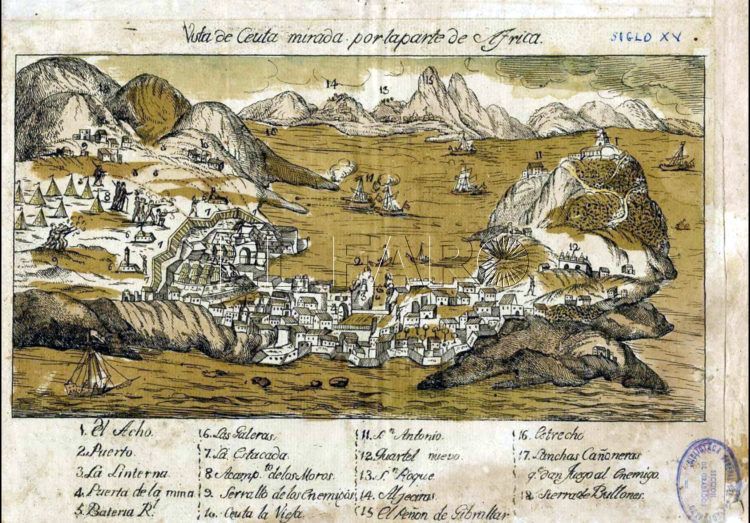 Vista de Ceuta mirada por la parte de Africa.
SIGLO XV
EL FARO
1. El Acho.
2. Puerto
3. La Linterna
4. Puerta de la mina
5. Bateria Rl.
6. Las Galeras.
7. La Estacada
8. Acampto. de los Moros.
9. Serrallo de los Enemigos
10. Ceuta la Vieja
11. Sn. Antonio.
12. Quartel nuevo.
13. Sn. Roque
14. Aljeciras
15. El Peñon de Gibraltar
16. Estrecho
17. Lanchas Cañoneras
qe. dan fuego al Enemigo.
18. Sierra de Bullones.
BIBLIOTECA